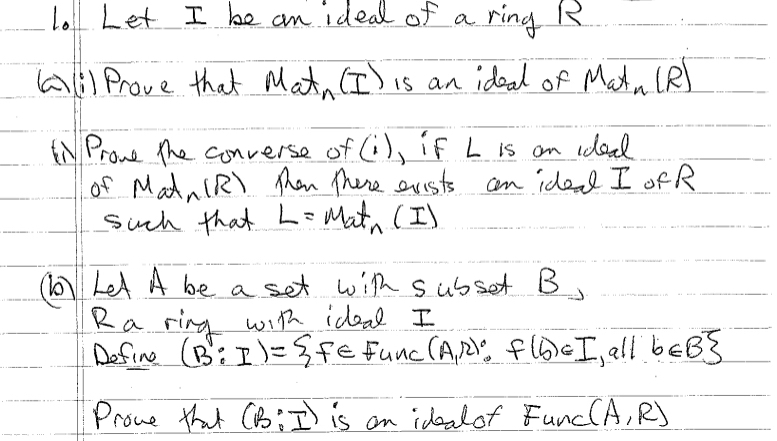 1. Let I be an ideal of a ring R
(a)(i) Prove that Matₙ(I) is an ideal of Matₙ(R)
(ii) Prove the converse of (i), if L is an ideal
of Matₙ(R) then there exists an ideal I of R
such that L = Matₙ(I)
(b) Let A be a set with subset B,
R a ring with ideal I
Define (B:I) = {f ∈ Func(A,R): f(b) ∈ I, all b ∈ B}
Prove that (B:I) is an ideal of Func(A,R)